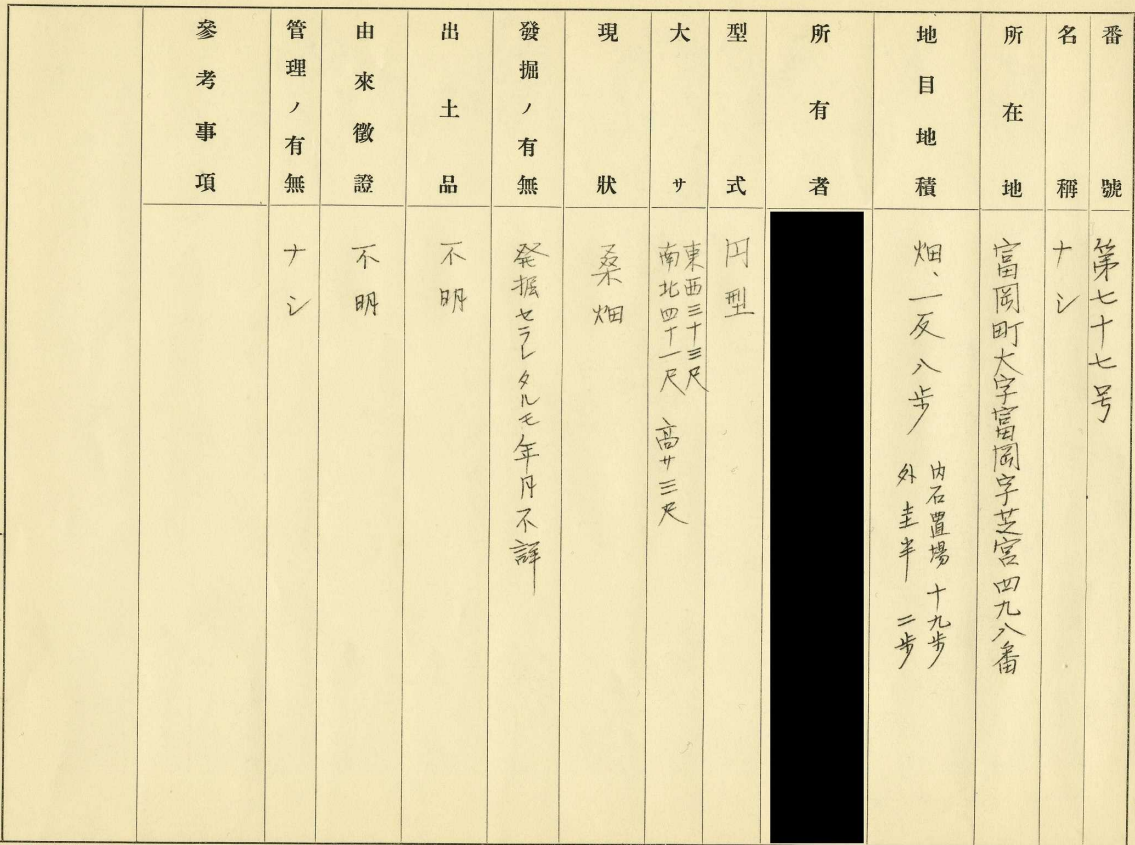 番號
第七十七号
名稱
ナシ
所在地
富岡町大字富岡字芝宮四九八番
地目地積
畑、一反八歩
内石置場 十九歩
外圭半 二歩
所有者
型式
円型
大サ
東西三十三尺
南北四十一尺 高サ三尺
現狀
桑畑
發掘ノ有無
発掘セラレタルモ年月不詳
出土品
不明
由來徵證
不明
管理ノ有無
ナシ
參考事項